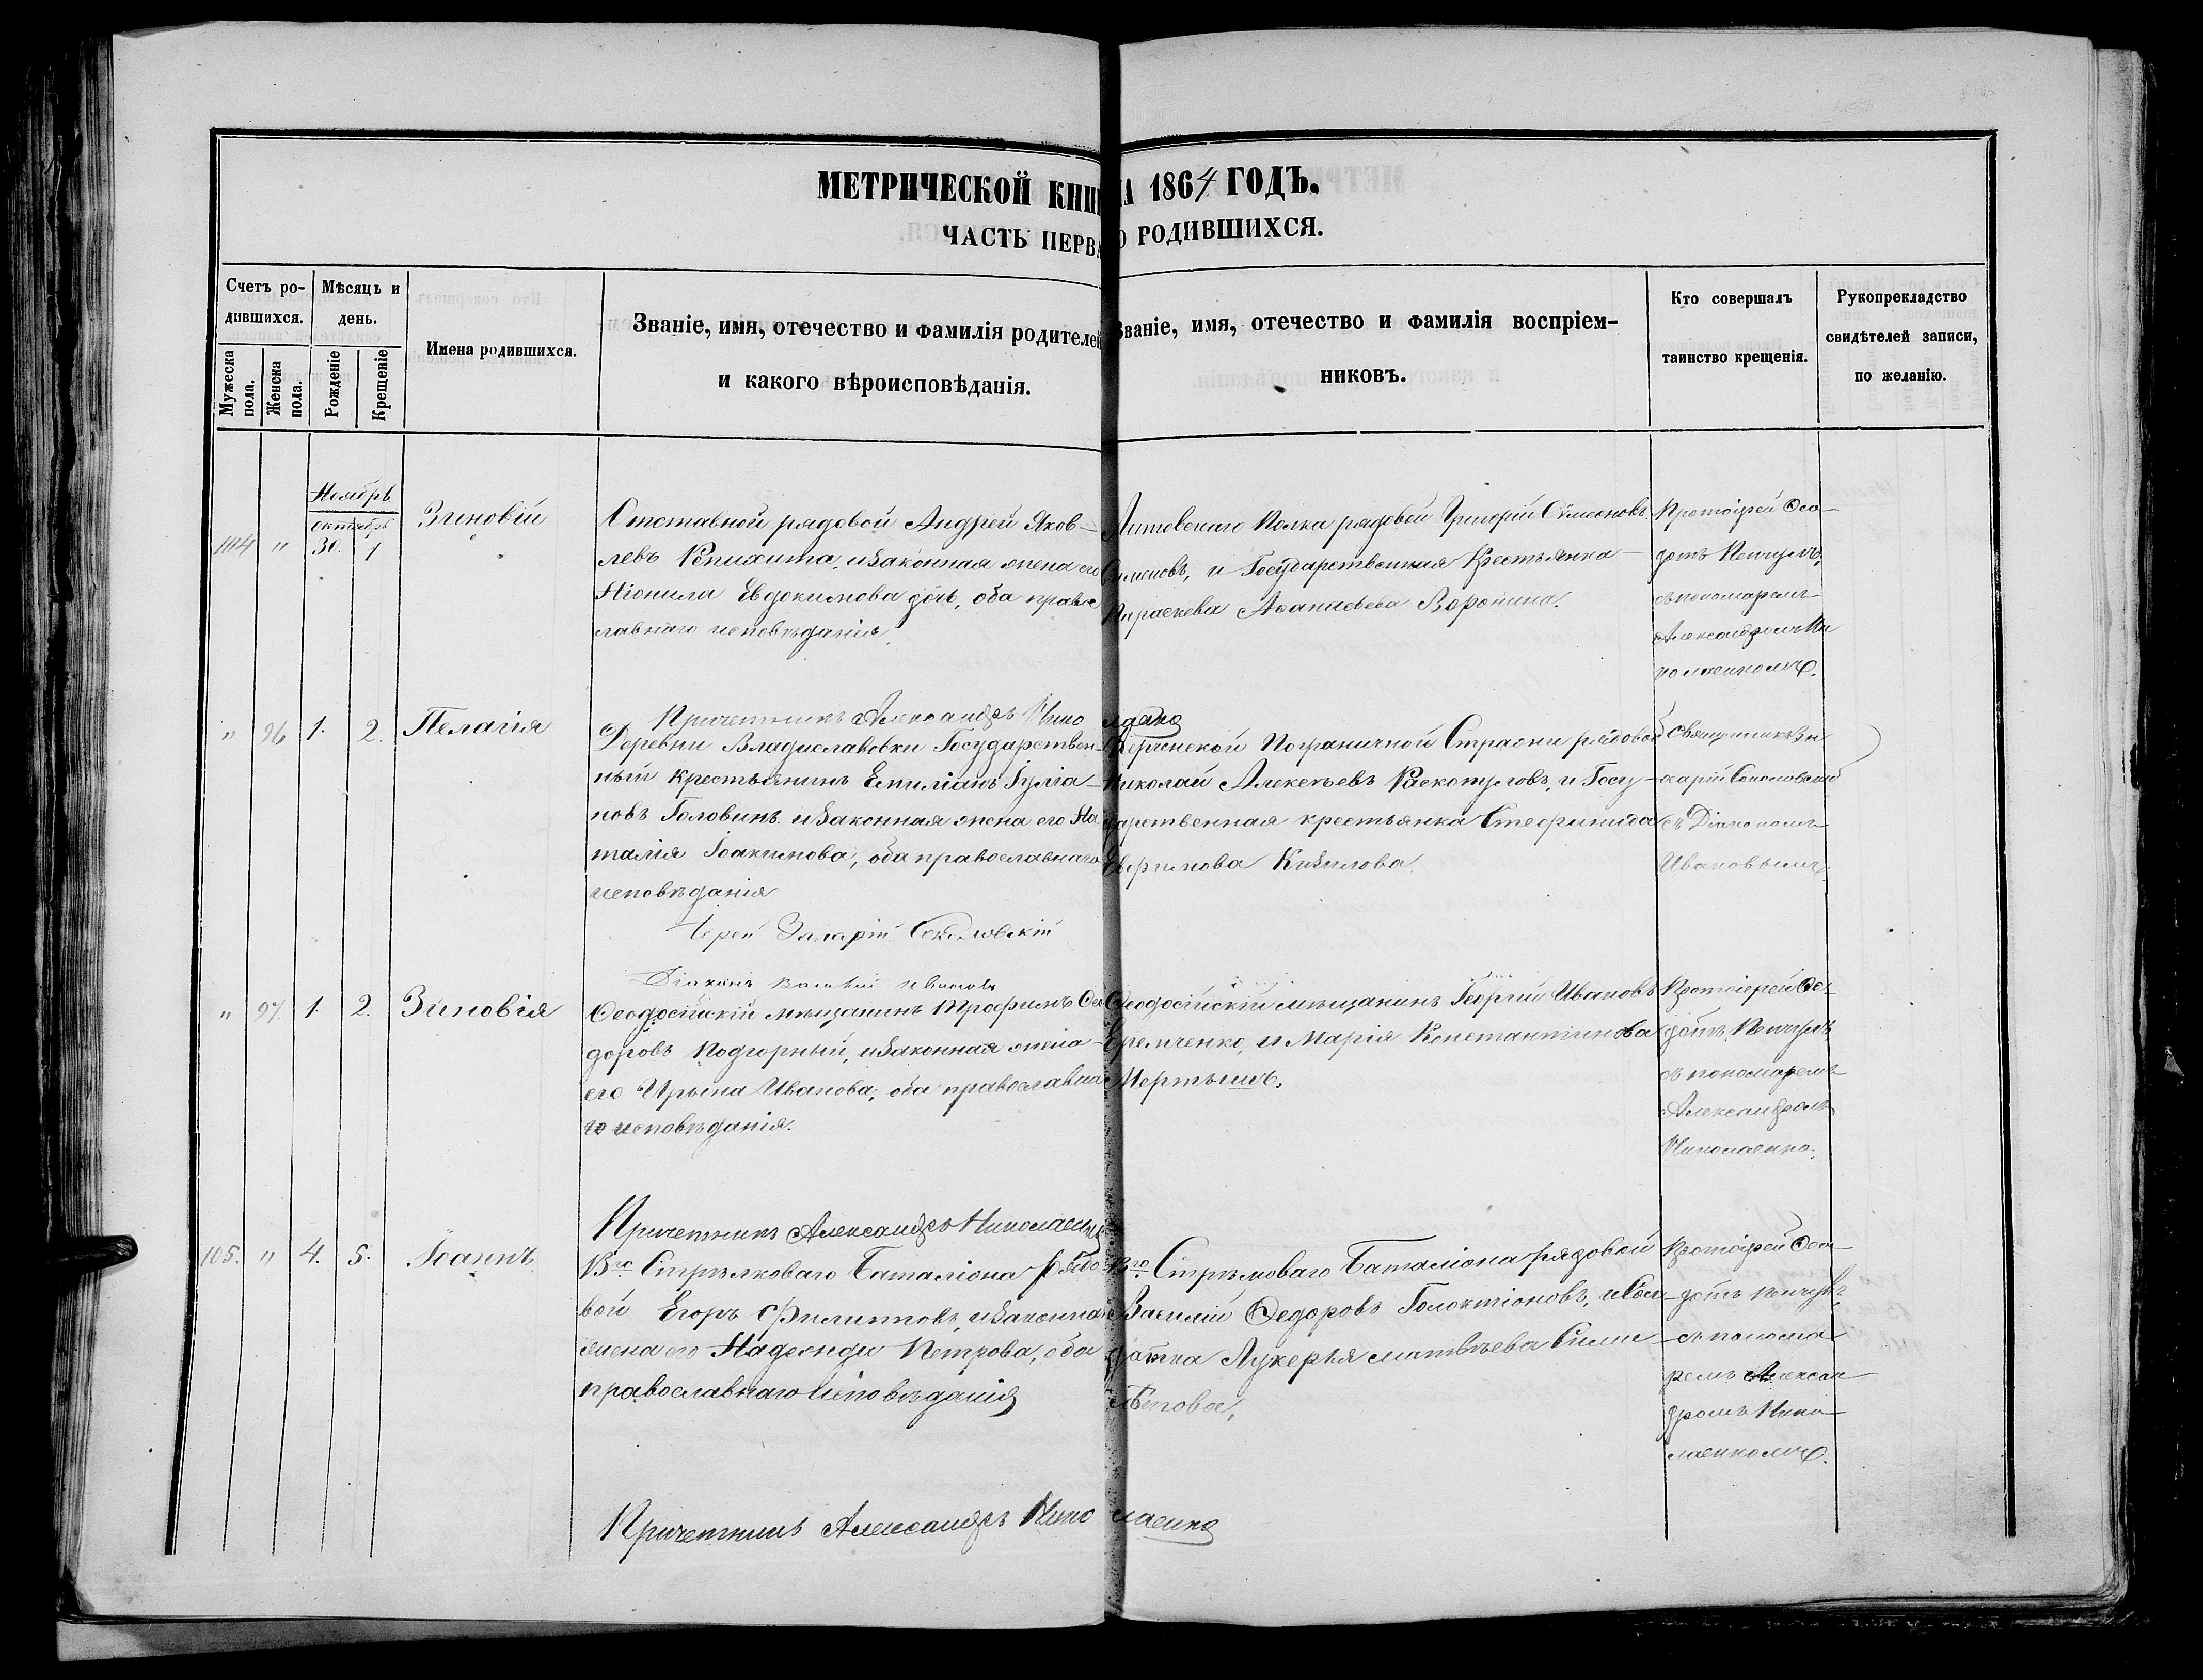 МЕТРИЧЕСКОЙ КНИ А 1864 ГОДЪ.
ЧАСТЬ ПЕРВА О РОДИВШИХСЯ.
Счетъ ро-
дившихся.
Мужеска
пола.
Женска
пола.
Мѣсяцъ и
день.
Рожденіе
Крещеніе
Имена родившихся.
Званіе, имя, отечество и фамилія родителей
и какого вѣроисповѣданія.
Званіе, имя, отечество и фамилія воспріем-
никовъ.
Кто совершалъ
таинство крещенія.
Рукоприкладство
свидѣтелей записи,
по желанію.
Ноябрь
октябрь
104 " 30. 1
Зиновій
Отставной рядовой Андрей Яков-
левъ изаконная жена его
Евдокимова дочь, оба право
славнаго исповѣданія.
Литовскаго Полка рядовой Григорій Сѵмеоновъ
и Государственная Крестьянка
Параскева Воронина.
Протоіерей Ѳео-
дотъ
съ пономаремъ
Александромъ Ни
колаенкомъ.
Причетникъ Александръ Нико лаенко
" 96 1. 2.
Пелагія
Деревни Владиславовки Государствен-
ный крестьянинъ Емиліанъ Іуліа-
новъ Головинъ изаконная жена его На
талія Іоакимова, оба православнаго
исповѣданія
Керченской Пограничной Стражи рядовой
Николай Алексѣевъ и Госу-
дарственная крестьянка Стефанида
Священникъ
Соколовскій
съ Діакономъ
Ивановымъ.
Іерей Соколовскій
Діаконъ Ивановъ
" 97. 1. 2.
Зиновія
Ѳеодосійскій мѣщанинъ Трофимъ Ѳео
доровъ Подгорный, изаконная жена
его Ирина Иванова, оба православна
го исповѣданія.
Ѳеодосійскій мѣщанинъ Георгій Ивановъ
Еремченко, и Марія Константинова
Протоіерей Ѳео-
дотъ
съ пономаремъ
Александромъ
Николаенко.
Причетникъ Александръ Николаенко
105. " 4. 5.
Іоаннъ
13го Стрѣлковаго Баталіона рядо
вой Егоръ Филипповъ, изаконная
жена его Надежда Петрова, оба
православнаго исповѣданія
13го Стрѣлковаго Баталіона рядовой
Василій Ѳедоровъ Голоктіоновъ, иСол-
датка Лукерья Матвѣева
Протоіерей Ѳео-
дотъ
съ понома
ремъ Алексан
дромъ Нико-
лаенкомъ.
Причетникъ Александръ Нико лаенко